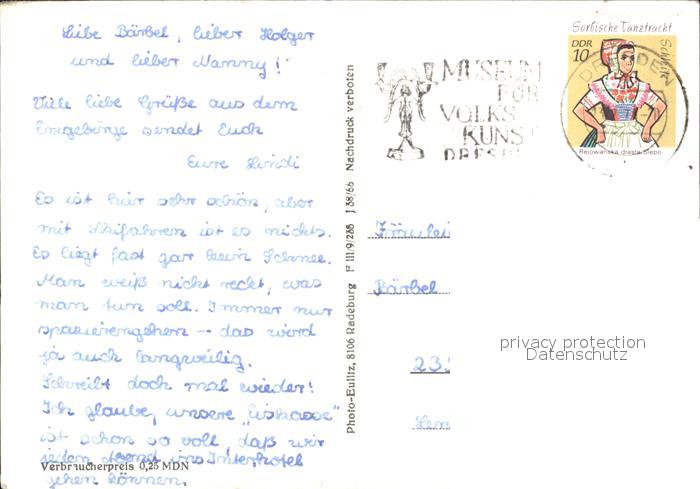 Liebe Bärbel, lieber Holger
und lieber Nanny!
Viele liebe Grüße aus dem
Erzgebirge sendet Euch
Eure Lindi
Es ist hier sehr schön, aber
mit Skifahren ist es nichts.
Es liegt fast gar kein Schnee.
Man weiß nicht recht, was
man tun soll. Immer nur
spazierengehen – das wird
ja auch langweilig.
Schreibt doch mal wieder!
Ich glaube, unsere „Eiskasse"
ist schon so voll, daß wir
jeden Abend ins Interhotel
gehen können.
Verbraucherpreis 0,25 MDN
Photo-Eulitz, 8106 Radeburg F III/9/285 J 58/66 Nachdruck verboten
MUSEUM
FÜR
VOLKS
KUNST
DRESD
Sorbische Tanztracht
Schleife
DDR
10
DRESDEN
Rejowańska drasta Slepo
Fräulei
Bärbel
23
privacy protection
Datenschutz